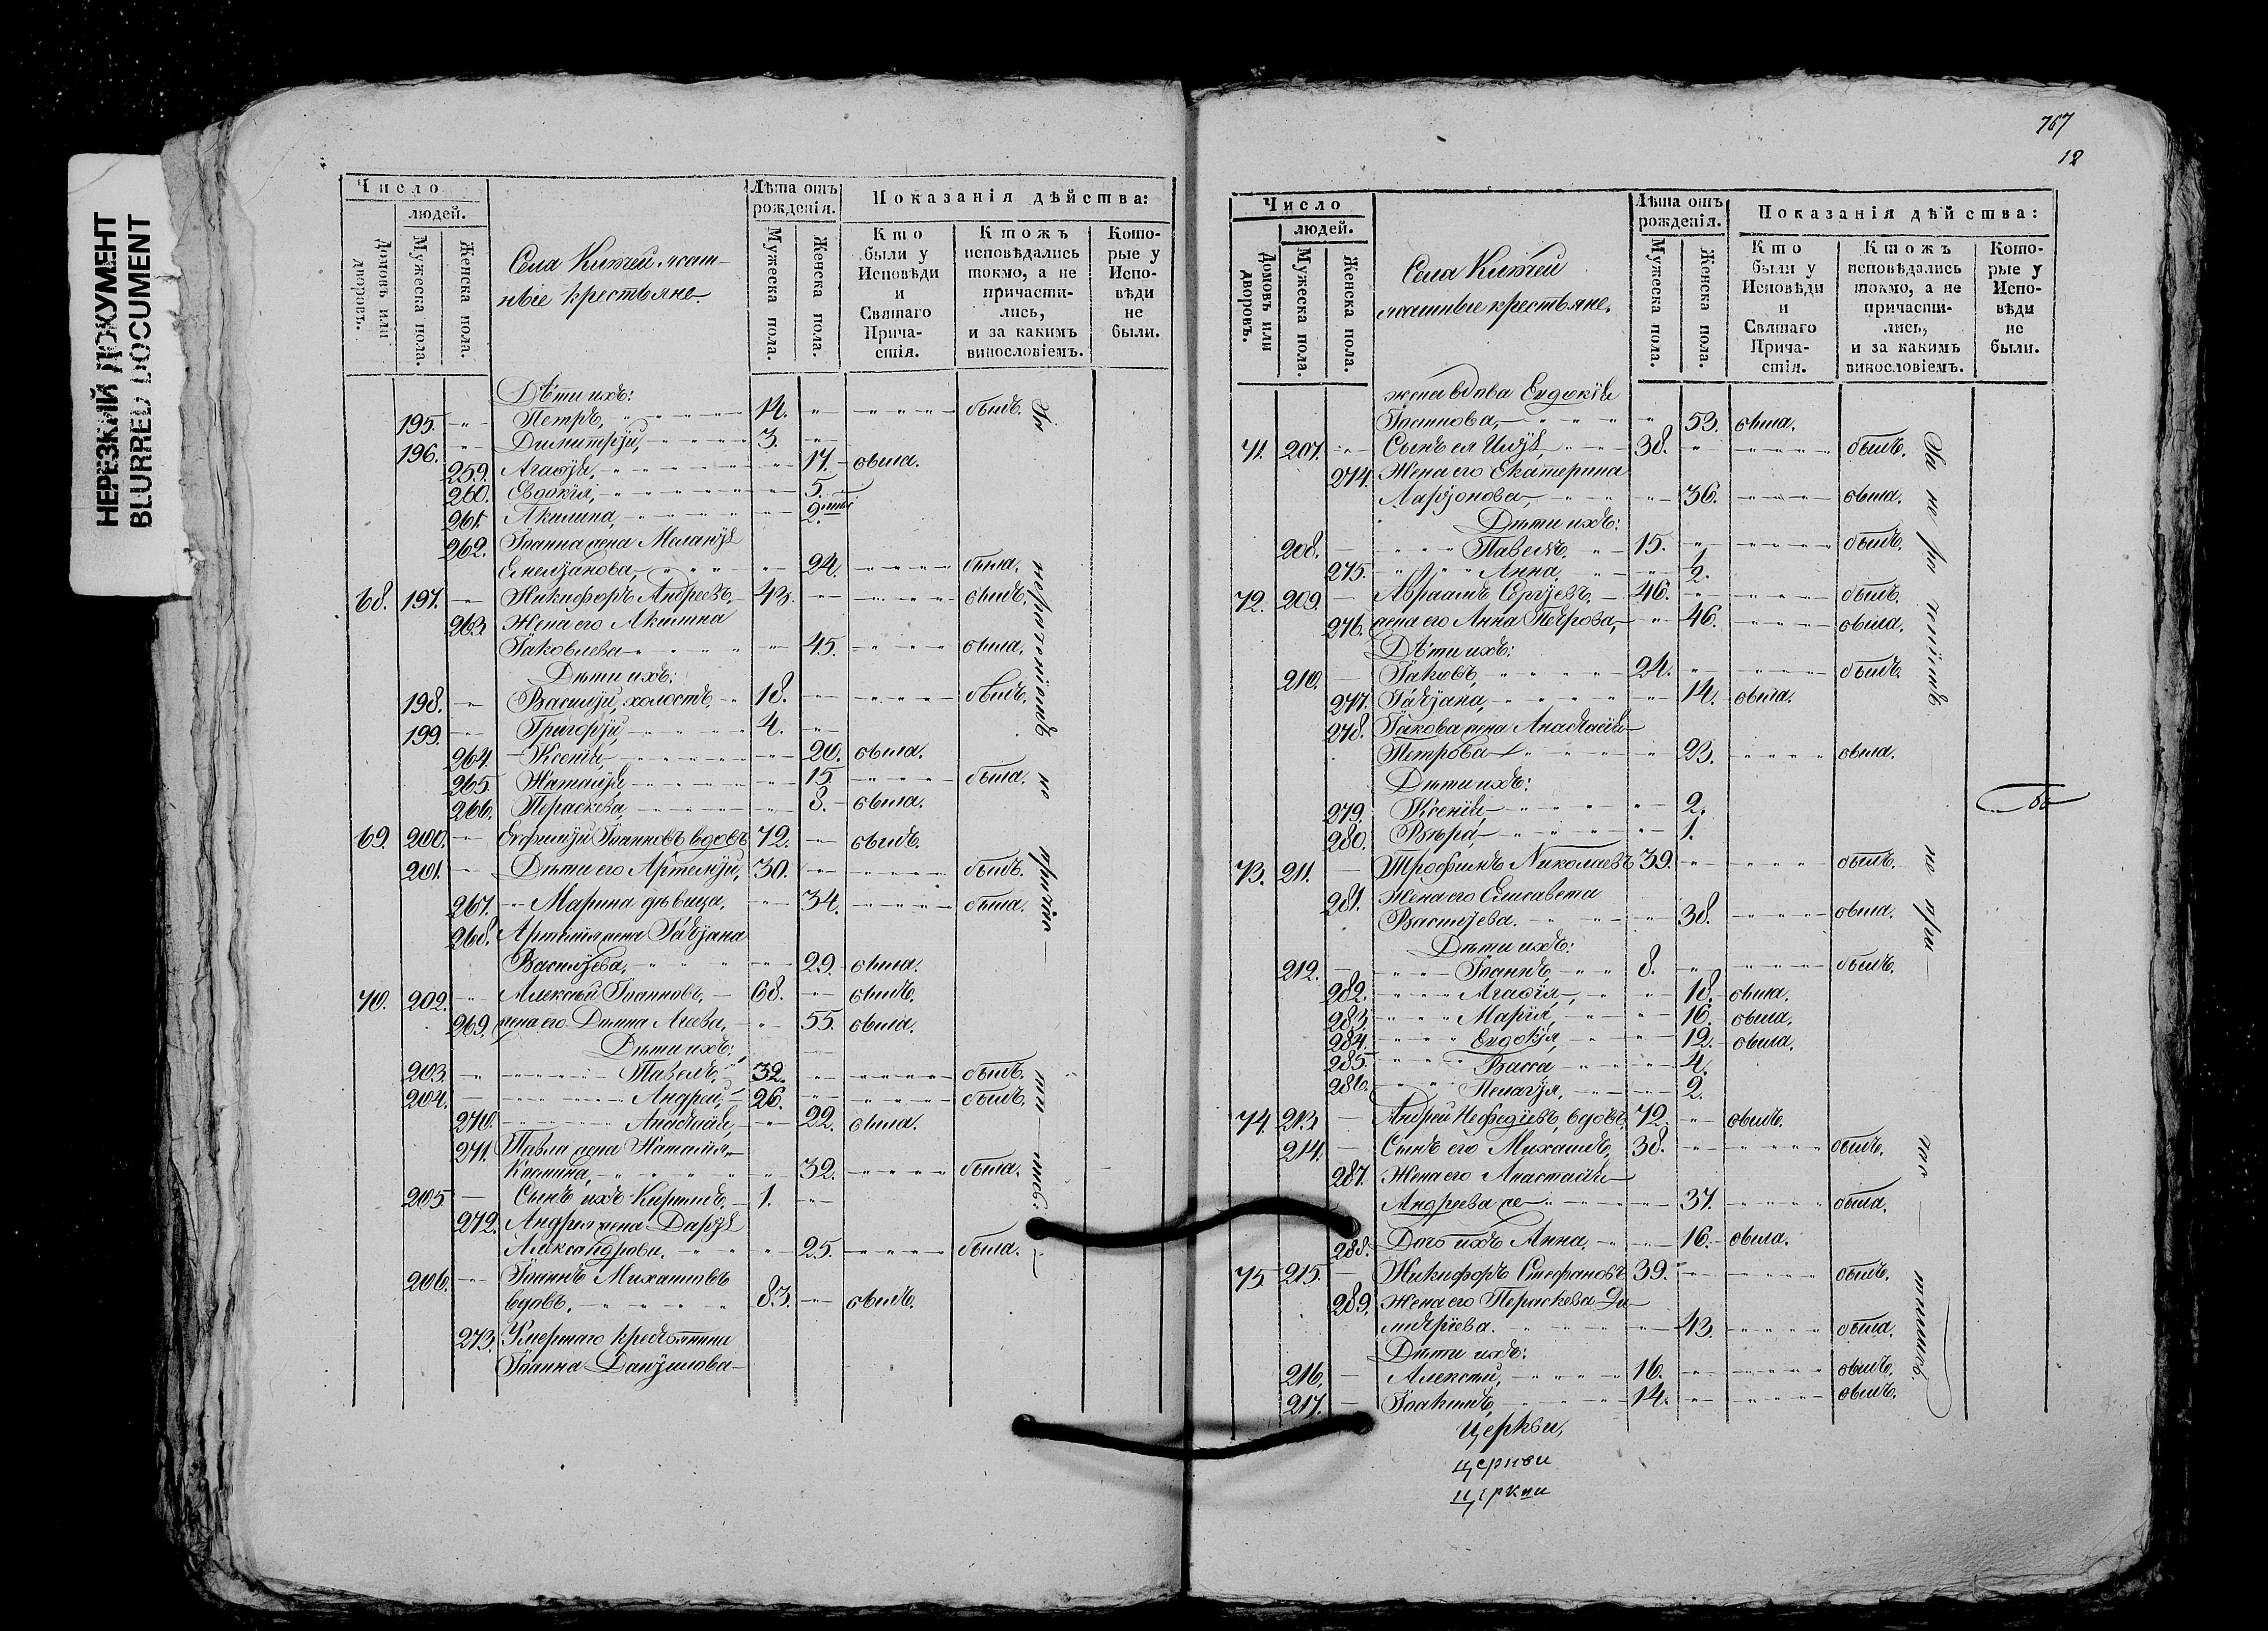 НЕРЕЗКИЙ ДОКУМЕНТ
BLURRED DOCUMENT
Число
людей.
Домовъ или дворовъ.
Мужеска пола.
Женска пола.
Лѣта отъ рожденія.
Мужеска пола.
Женска пола.
Показанія дѣйства:
Кто были у Исповѣди и Святаго Прича-стія.
Ктожъ исповѣдались токмо, а не причасти-лись, и за какимъ винословіемъ.
Кото-рые у Испо-вѣди не были.
Села
крестьяне
Дѣти ихъ:
195. Петръ, 14. былъ.
196. Димитрій, 3.
259. Агафія, 17. была.
260. Евдокія, 5.
261. Акилина, 2.
262. Іоанна жена Меланія
Емеліанова, 24. была.
68. 197. Никифоръ Андреевъ, 43. былъ.
263. Жена его Акилина
Іаковлева 45. была.
Дѣти ихъ:
198. Василій, холостъ, 18. былъ.
199. Григорій, 4.
264. Ксенія, 20. была.
265. Наталія 15. была.
266. Параскева, 8. была.
69. 200. Евфимій Іоанновъ вдовъ 72. былъ.
201. Дѣти его Артемій, 30. былъ.
267. Марина дѣвица, 34. была.
268. Артемія жена Татіана
Василіева, 29. была.
70. 202. Алексѣй Іоанновъ, 68. былъ.
269. жена его Домна Агеева, 55. была.
Дѣти ихъ:
203. Павелъ, 32. былъ.
204. Андрей, 26. былъ.
270. Анастасія, 22. была.
271. Павла жена Наталія
Космина, 32. была.
205. Сынъ ихъ Кириллъ, 1.
272. Андрея жена Дарія
Александрова. 25. была.
206. Іоаннъ Михаиловъ
вдовъ. 83. былъ.
273. Умершаго крестьянина
Іоанна Даніилова
767
12
Число
людей.
Домовъ или дворовъ.
Мужеска пола.
Женска пола.
Лѣта отъ рожденія.
Мужеска пола.
Женска пола.
Показанія дѣйства:
Кто были у Исповѣди и Святаго Прича-стія.
Ктожъ исповѣдались токмо, а не причасти-лись, и за какимъ винословіемъ.
Кото-рые у Испо-вѣди не были.
Села
крестьяне.
жена вдова Евдокія
Іоаннова, 53. была.
71. 207. Сынъ ея Илія, 38. былъ.
274. Жена его Екатерина
Ларіонова, 36. была.
Дѣти ихъ:
208. Павелъ 15. былъ.
275. Анна, 2.
72. 209. Авраамъ Сергіевъ, 46. былъ.
276. жена его Анна Петрова, 46. была.
Дѣти ихъ:
210. Іаковъ, 24. былъ.
277. Татіана, 14. была.
278. Іакова жена Анастасія
Петрова 23. была.
Дѣти ихъ:
279. Ксенія, 2.
280. Вѣра, 1.
73. 211. Трофимъ Николаевъ 39. былъ.
281. Жена его Елисавета
Василіева. 38. была.
Дѣти ихъ:
212. Іоаннъ 8. былъ.
282. Агафія, 18. была.
283. Марія, 16. была.
284. Евдокія, 12. была.
285. Васса, 4.
286. Пелагія, 2.
74. 213. Андрей Мефодіевъ, вдовъ, 72. былъ.
214. Сынъ его Михаилъ, 38. былъ.
287. Жена его Анастасія
Андреева 37. была.
288. Дочь ихъ Анна, 16. была.
75 215. Никифоръ Стефановъ 39. былъ.
289. Жена его Параскева Ди
митріева. 43. была.
Дѣти ихъ:
216. Алексѣй, 16. былъ.
217. Іоакимъ, 14. былъ.
Церкви,
церкви
церкви